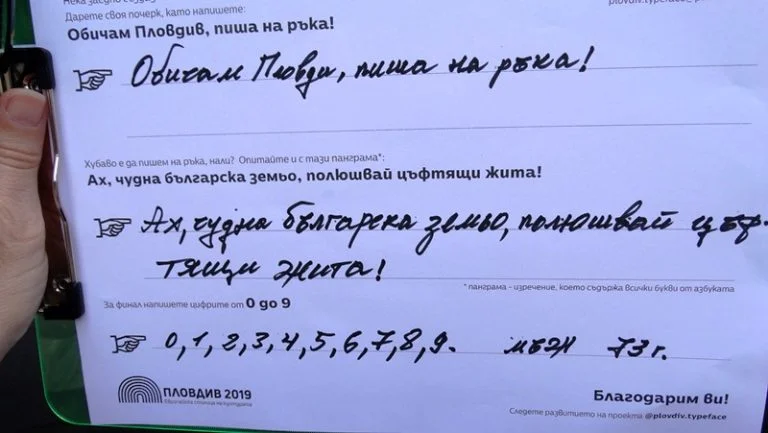 Дарете своя почерк, като напишете:
Обичам Пловдив, пиша на ръка!
Обичам Пловди, пиша на ръка!
Хубаво е да пишем на ръка, нали? Опитайте и с тази панграма*:
Ах, чудна българска земьо, полюшвай цъфтящи жита!
Ах, чудна българска земьо, полюшвай цъф-
тящи жита!
* панграма - изречение, което съдържа всички букви от азбуката
За финал напишете цифрите от 0 до 9
0, 1, 2, 3, 4, 5, 6, 7, 8, 9. мъж 73 г.
ПЛОВДИВ 2019
Европейска столица на културата
Благодарим ви!
Следете развитието на проекта @plovdiv.typeface